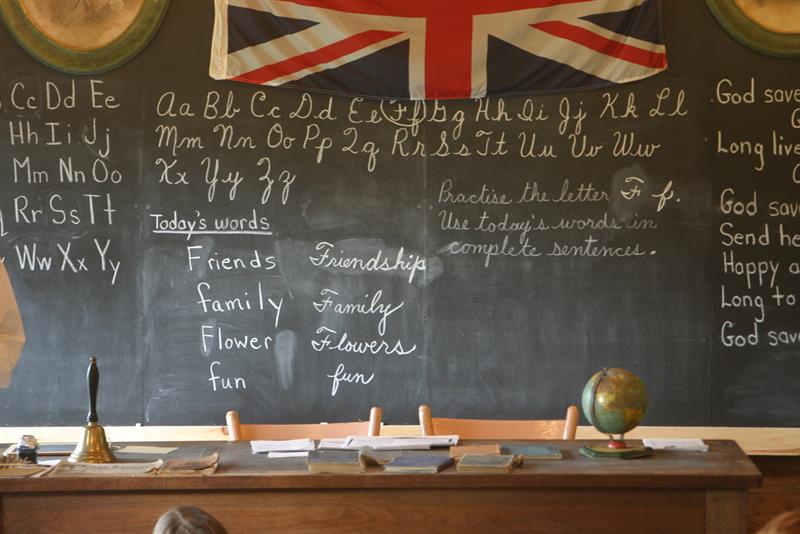 Cc Dd Ee
Hh Ii Jj
Mm Nn Oo
Rr Ss Tt
Ww Xx Yy
Aa Bb Cc Dd Ee Ff Gg Hh Ii Jj Kk Ll
Mm Nn Oo Pp Qq Rr Ss Tt Uu Vv Ww
Xx Yy Zz
Today's words
Friends Friendship
family Family
Flower Flowers
fun fun
Practise the letter F f.
Use today's words in
complete sentences.
God save
Long live
God save
Send he
Happy a
Long to
God save